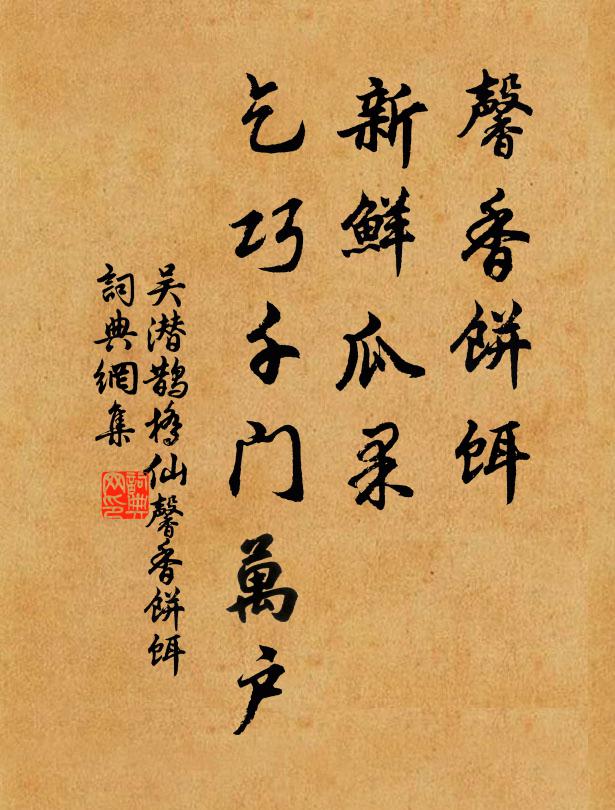 馨香餅餌
新鮮瓜果
乞巧千门萬户
吴潜鹊橋仙馨香餅餌
詞典網集
詞典网印